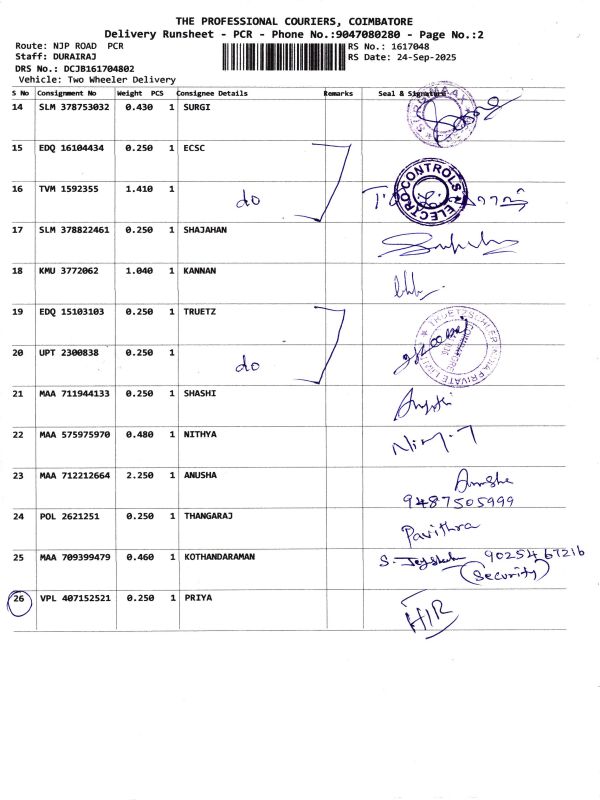 THE PROFESSIONAL COURIERS, COIMBATORE
Delivery Runsheet - PCR - Phone No.:9047080280 - Page No.:2
Route: NJP ROAD PCR
RS No.: 1617048
Staff: DURAIRAJ
RS Date: 24-Sep-2025
DRS No.: DCJB161704802
Vehicle: Two Wheeler Delivery
S No Consignment No Weight PCS Consignee Details Remarks Seal & Signature
14 SLM 378753032 0.430 1 SURGI
15 EDQ 16104434 0.250 1 ECSC
16 TVM 1592355 1.410 1 do
ELECTRO CONTROLS
17 SLM 378822461 0.250 1 SHAJAHAN
18 KMU 3772062 1.040 1 KANNAN
19 EDQ 15103103 0.250 1 TRUETZ
20 UPT 2300838 0.250 1 do
21 MAA 711944133 0.250 1 SHASHI
22 MAA 575975970 0.480 1 NITHYA
23 MAA 712212664 2.250 1 ANUSHA Anusha
9487505999
24 POL 2621251 0.250 1 THANGARAJ Pavithra
25 MAA 709399479 0.460 1 KOTHANDARAMAN S. 9025467216
(Security)
26 VPL 407152521 0.250 1 PRIYA H/R